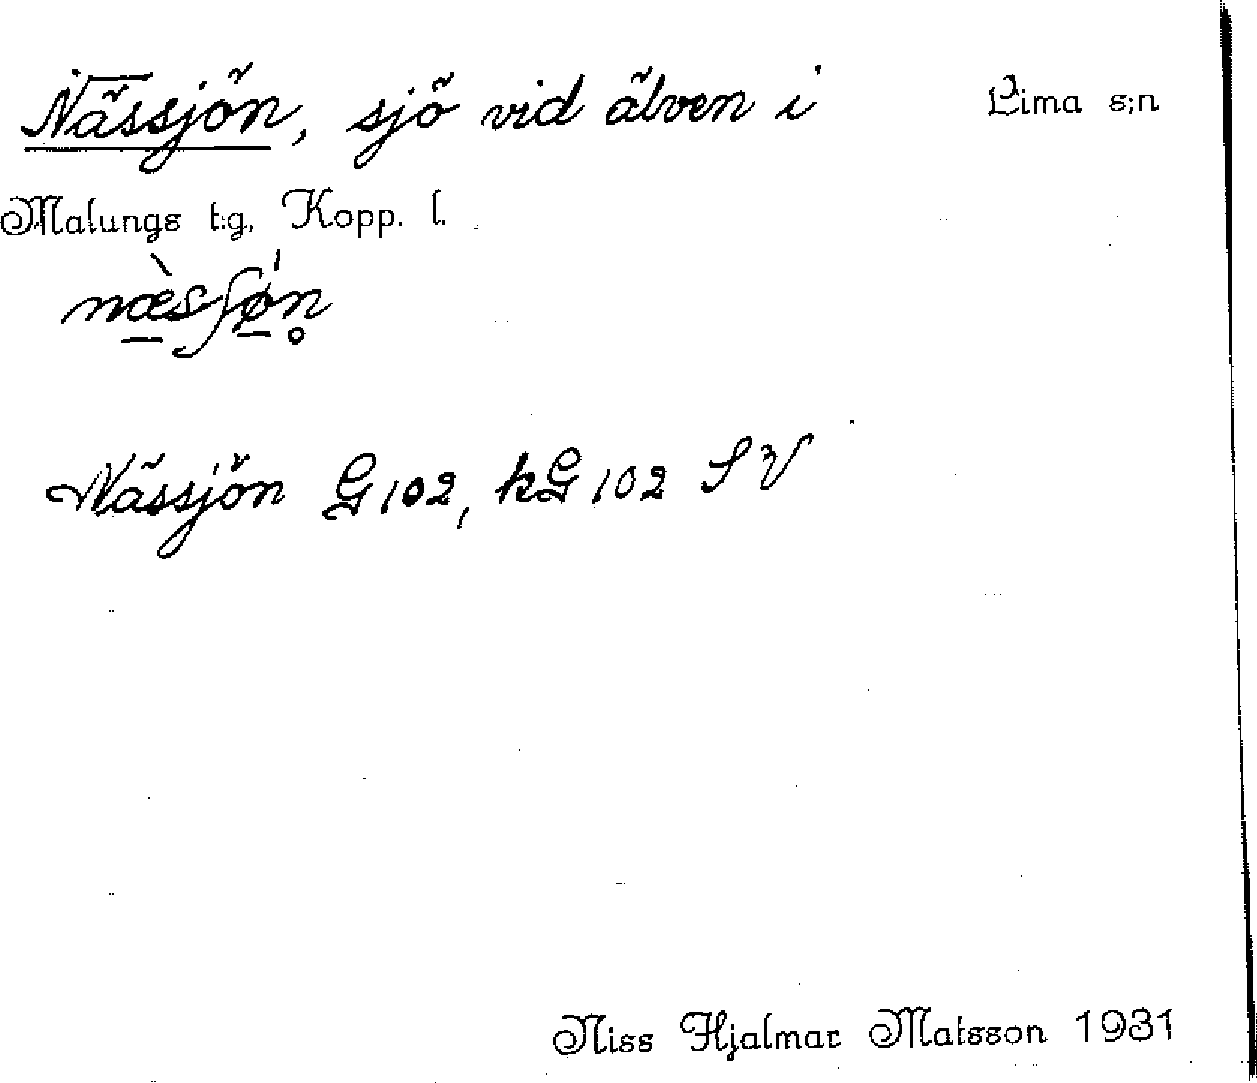 Nässjön, sjö vid älven i Lima s:n
Malungs t:g, Kopp. l.
næ̀sʃø̀n̥
Nässjön G 102, kG 102 SV
Niss Hjalmar Matsson 1931